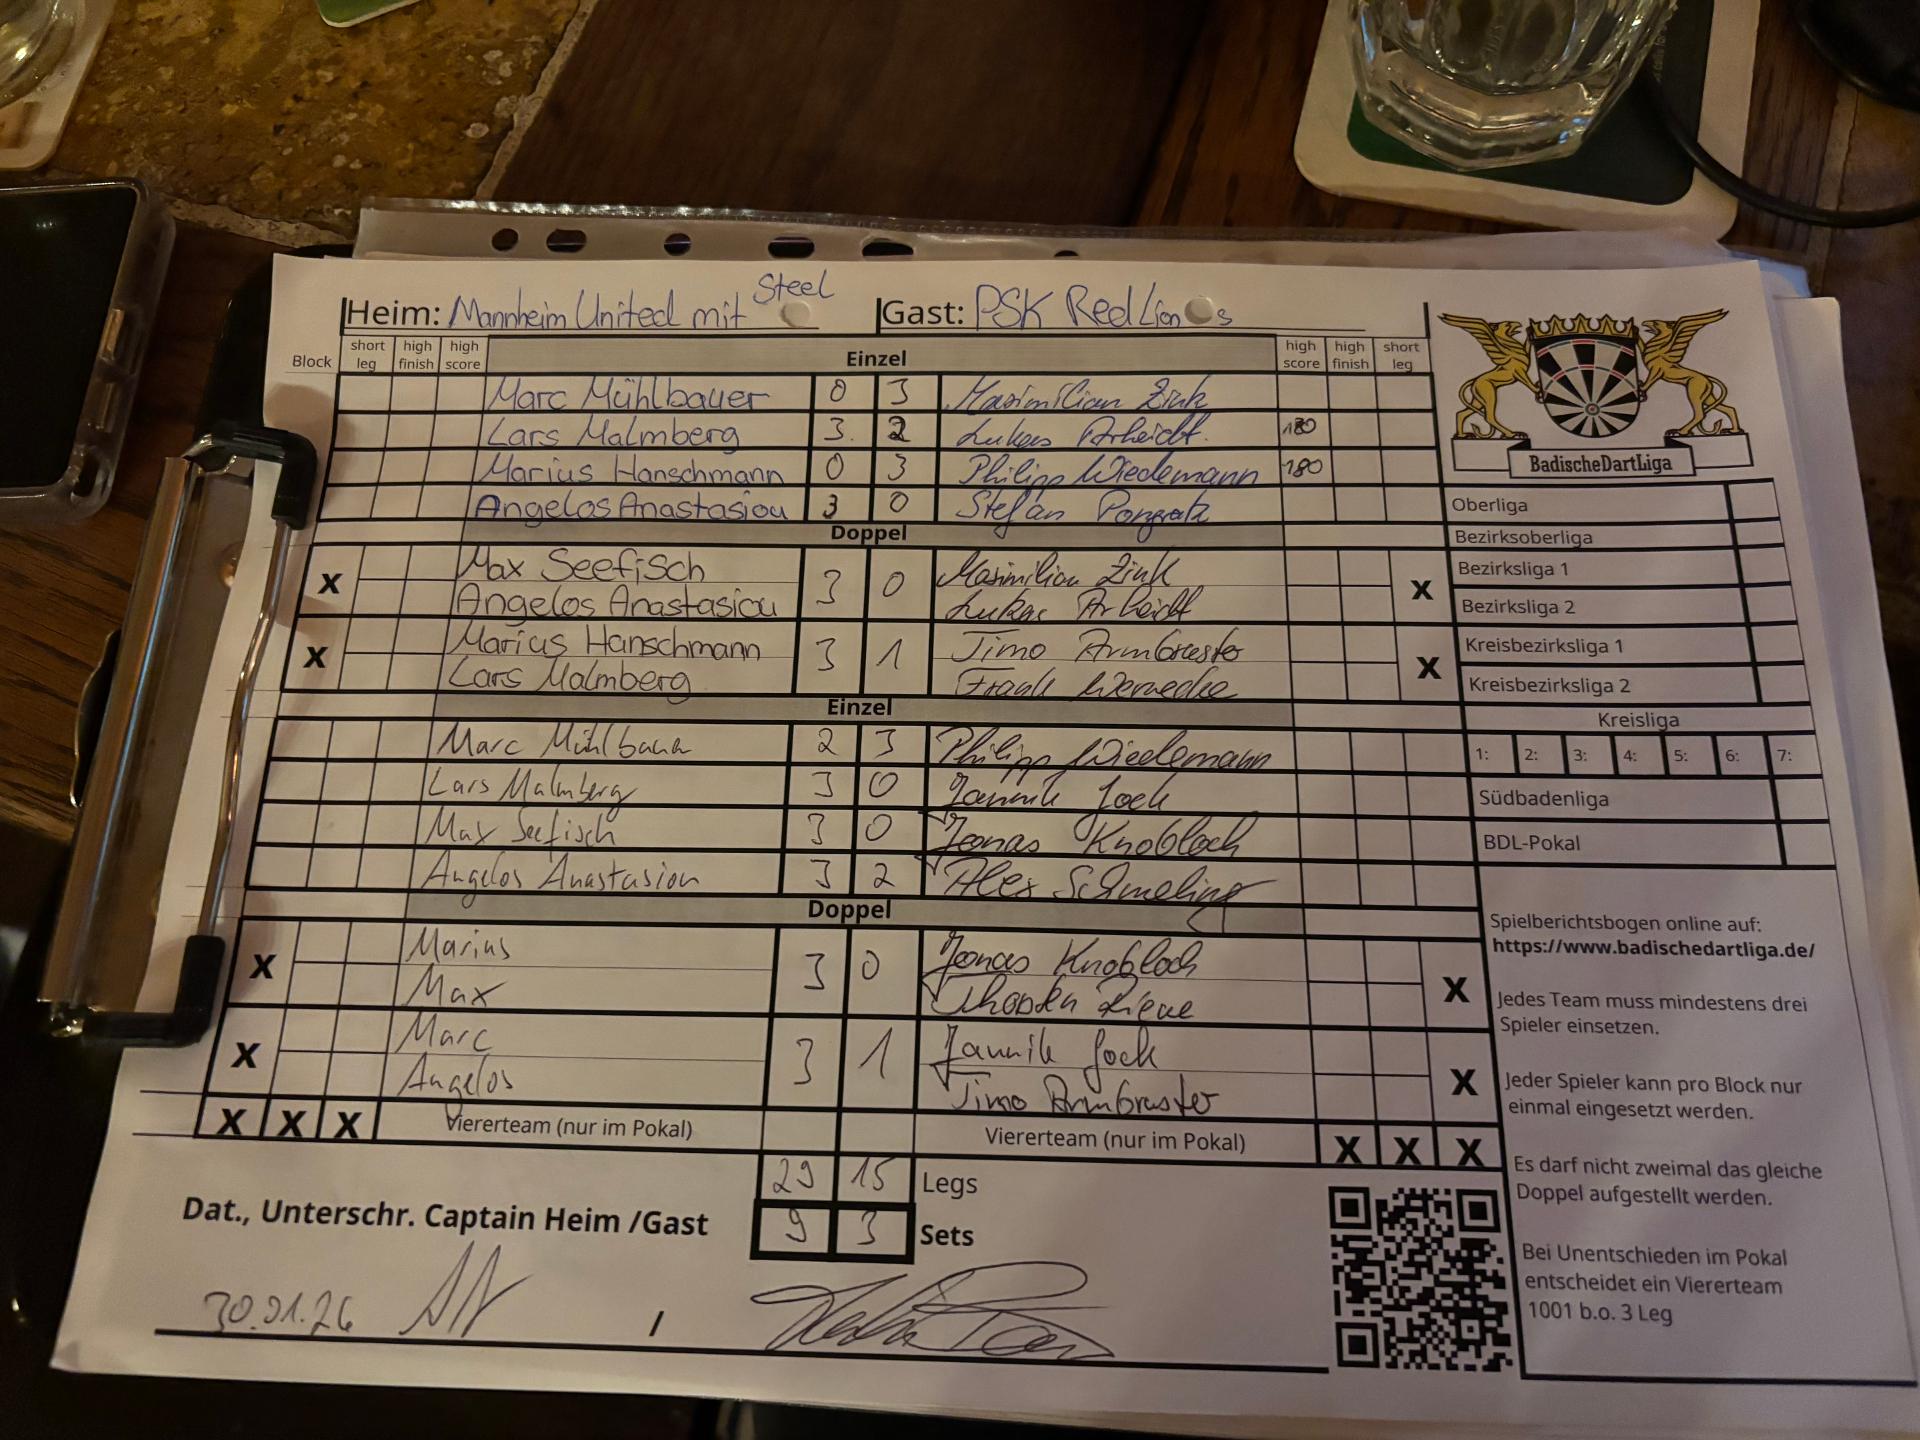 Heim: Mannheim United mit Steel Gast: PSK Red Lions
Block short leg high finish high score Einzel high score high finish short leg
Marc Mühlbauer 0 3 Maximilian Zink
Lars Malmberg 3 2 Lukas Arheidt 180
Marius Hanschmann 0 3 Philipp Wiedemann 180
Angelos Anastasiou 3 0 Stefan Pongratz
Doppel
X Max Seefisch 3 0 Maximilian Zink X
Angelos Anastasiou Lukas Arheidt
X Marius Hanschmann 3 1 Timo Armbruster X
Lars Malmberg Frank Wernecke
Einzel
Marc Mühlbauer 2 3 Philipp Wiedemann
Lars Malmberg 3 0 Jannik Jock
Max Seefisch 3 0 Jonas Knobloch
Angelos Anastasiou 3 2 Alex Schmeling
Doppel
X Marius 3 0 Jonas Knobloch X
Max
X Marc 3 1 Jannik Jock X
Angelos Timo Armbruster
X X X Viererteam (nur im Pokal) Viererteam (nur im Pokal) X X X
29 15 Legs
9 3 Sets
Dat., Unterschr. Captain Heim /Gast
30.01.26 /
BadischeDartLiga
Oberliga
Bezirksoberliga
Bezirksliga 1
Bezirksliga 2
Kreisbezirksliga 1
Kreisbezirksliga 2
Kreisliga
1: 2: 3: 4: 5: 6: 7:
Südbadenliga
BDL-Pokal
Spielberichtsbogen online auf:
https://www.badischedartliga.de/
Jedes Team muss mindestens drei
Spieler einsetzen.
Jeder Spieler kann pro Block nur
einmal eingesetzt werden.
Es darf nicht zweimal das gleiche
Doppel aufgestellt werden.
Bei Unentschieden im Pokal
entscheidet ein Viererteam
1001 b.o. 3 Leg